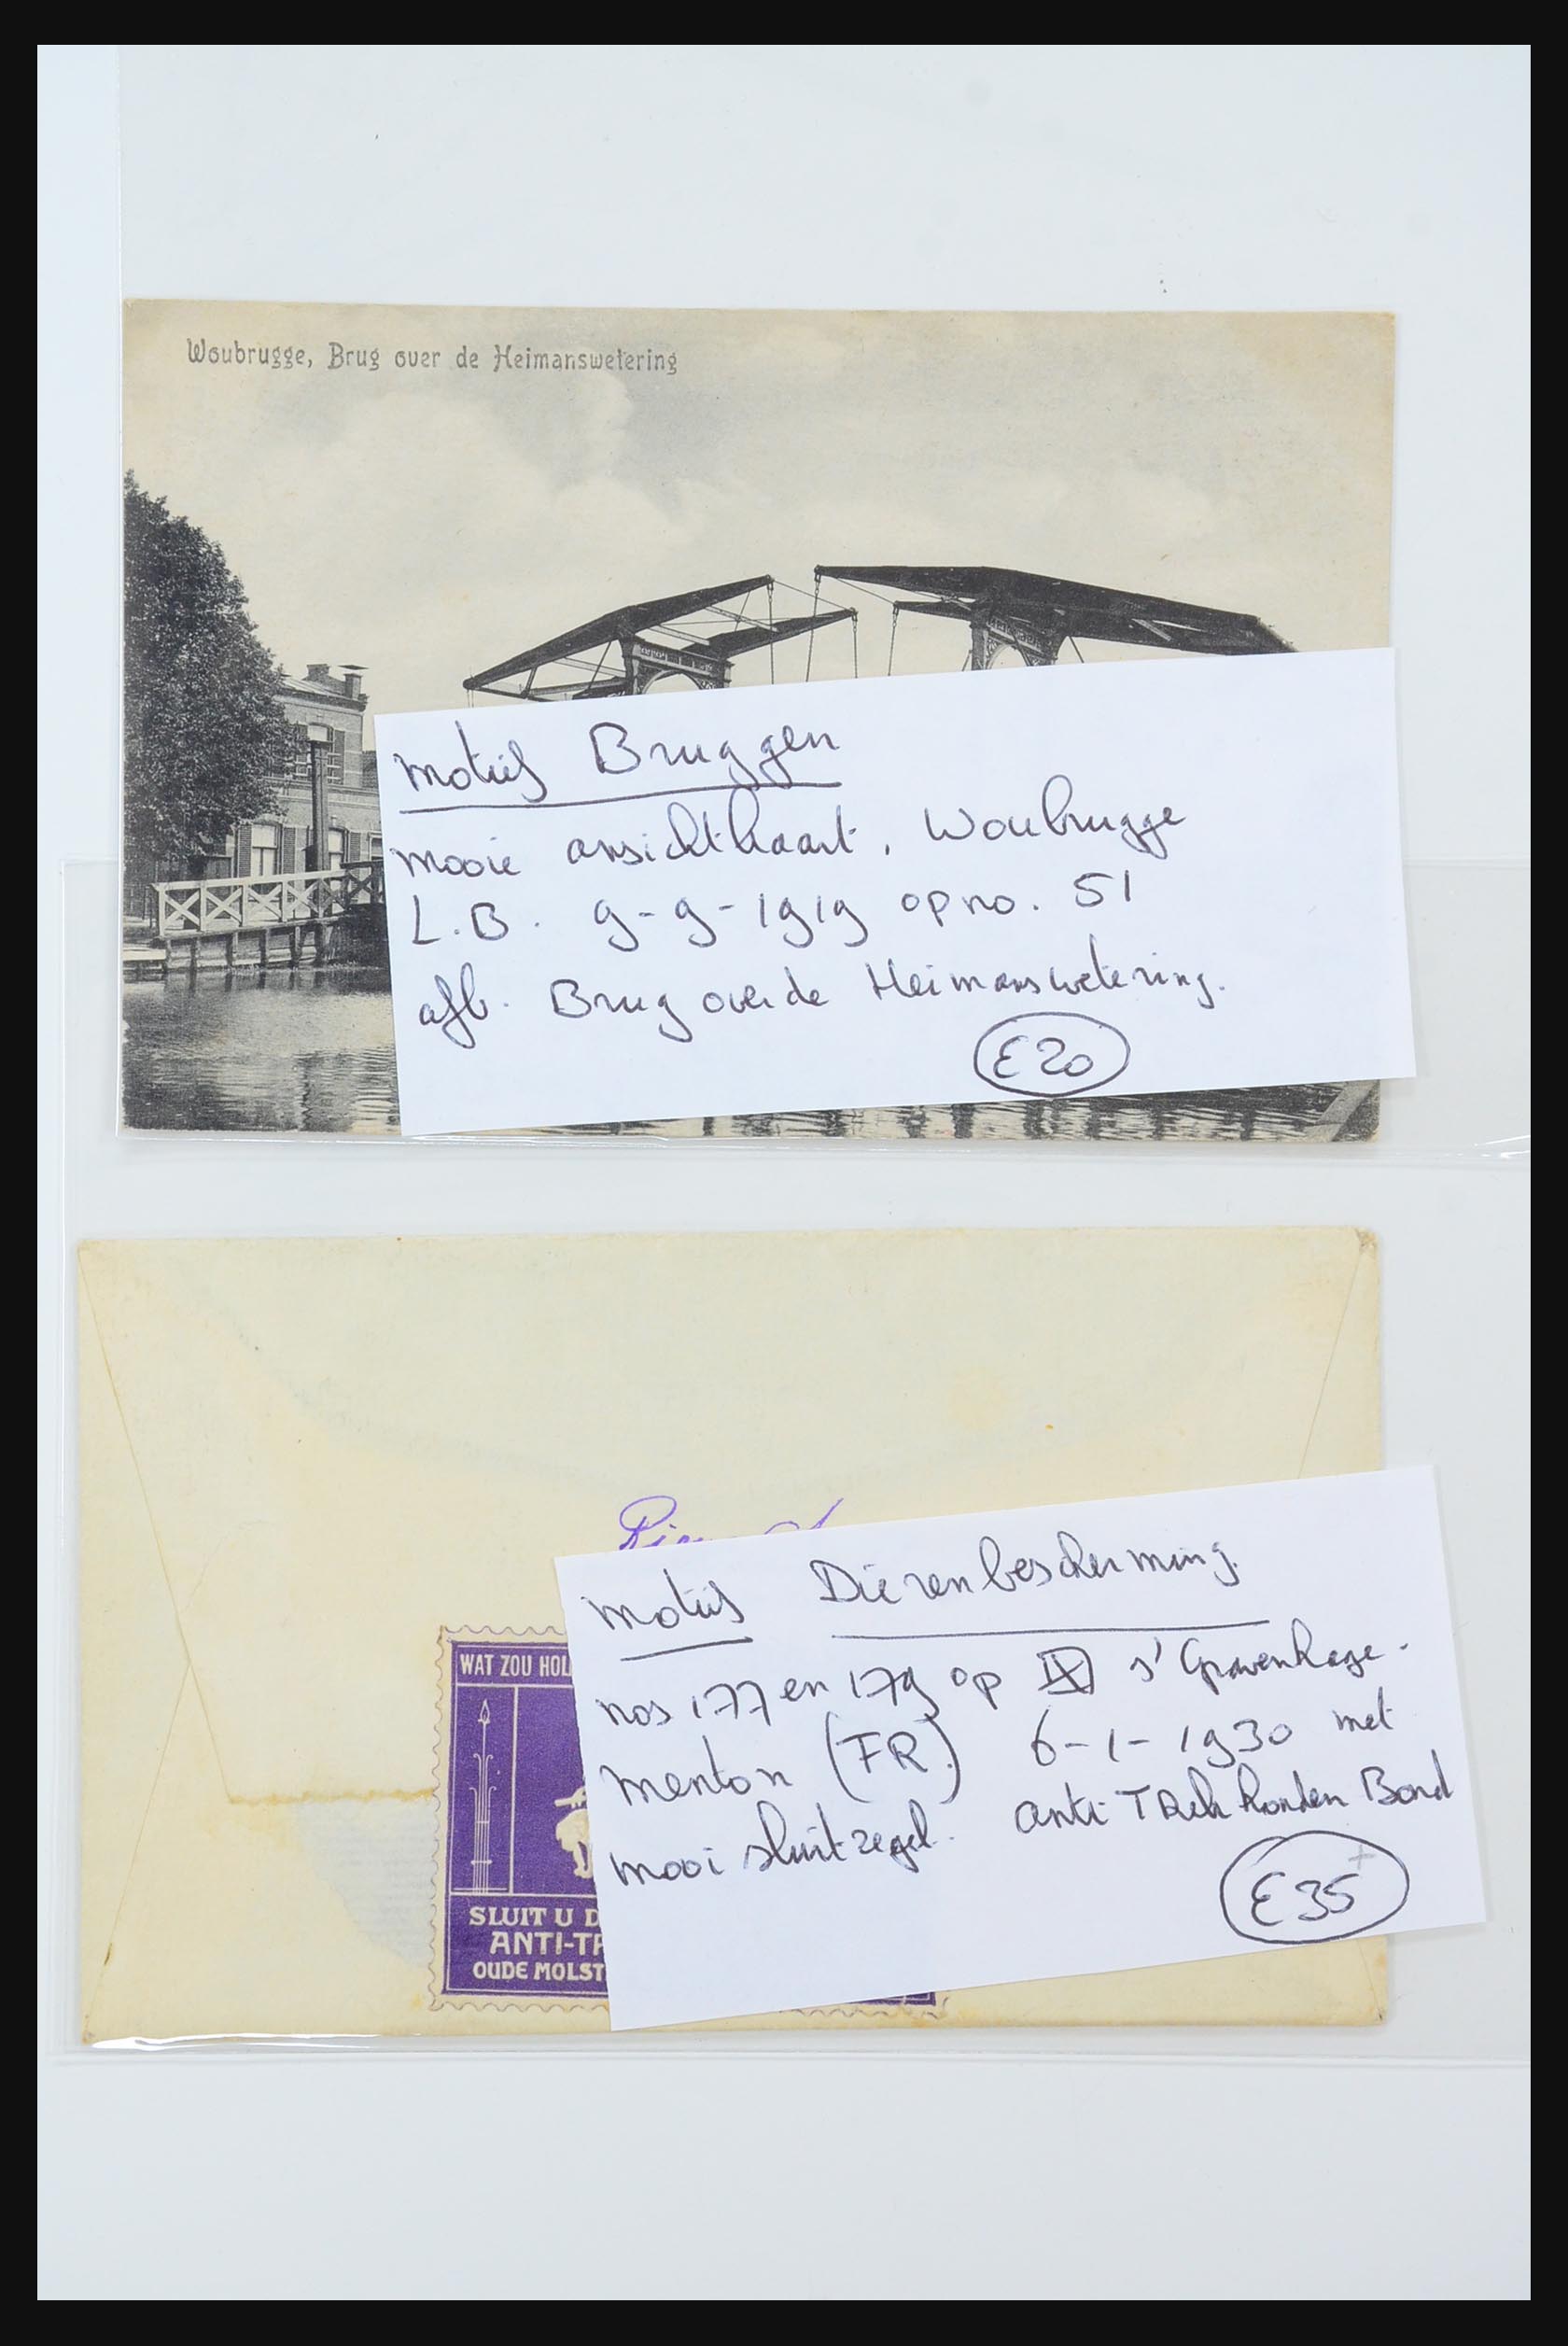 Woubrugge, Brug over de Heimanswetering
motief Bruggen
mooie ansichtkaart. Woubrugge
L.B. 9-9-1919 op no. 51
afb. Brug over de Heimanswetering.
€20
motief Dierenbescherming
nos 177 en 179 op s' Gravenhage -
menton (FR.) 6-1-1930 met
mooi sluitzegel. anti Trekhonden Bond
€35
WAT ZOU HOL
SLUIT U D
ANTI-TR
OUDE MOLST